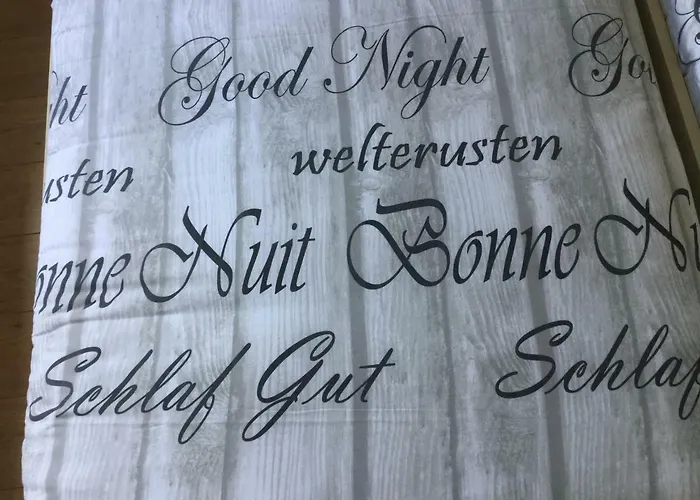 ht Good Night Goo
usten welterusten
onne Nuit Bonne Nu
Schlaf Gut Schlaf